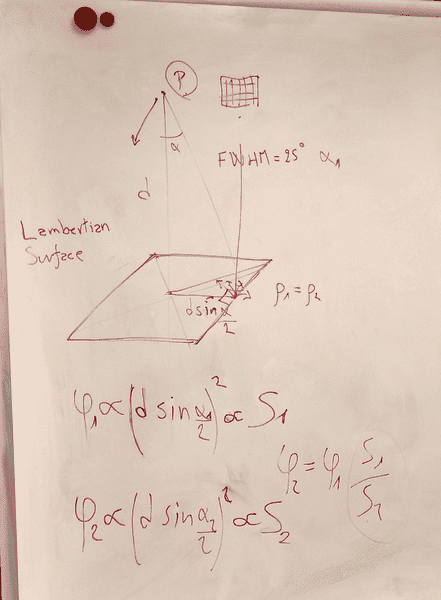 P
α
FWHM=25° α₁
d
Lambertian
Surface
d sin α/2
ρ₁ = ρ₂
φ₁ ∝ (d sin α₁/2)² ∝ S₁
φ₂ = φ₁ S₁/S₂
φ₂ ∝ (d sin α₂/2)² ∝ S₂